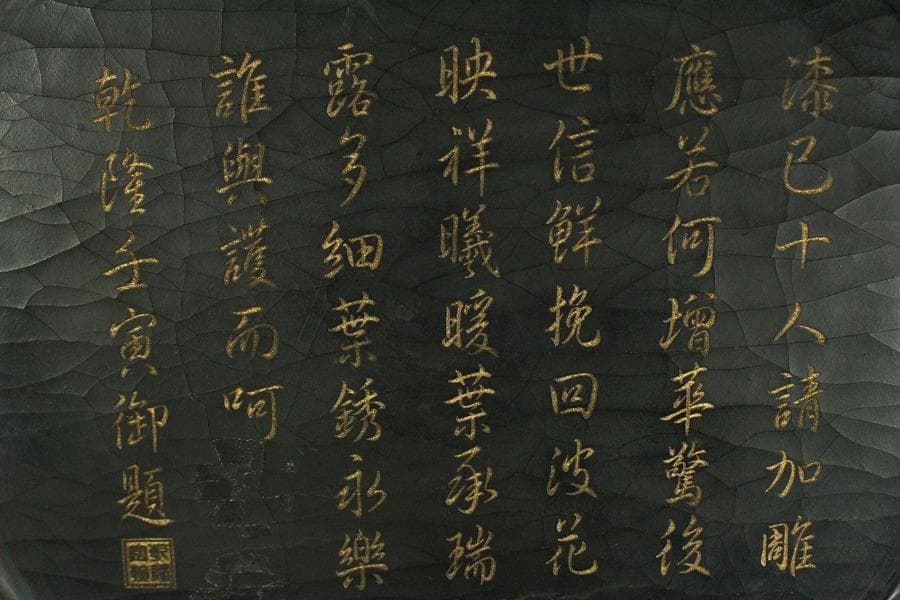 漆已十人請加雕
應若何增華驚後
世信鮮挽回波花
映祥曦暖葉承瑞
露多細葉銹永樂
誰與護而呵
乾隆壬寅御題